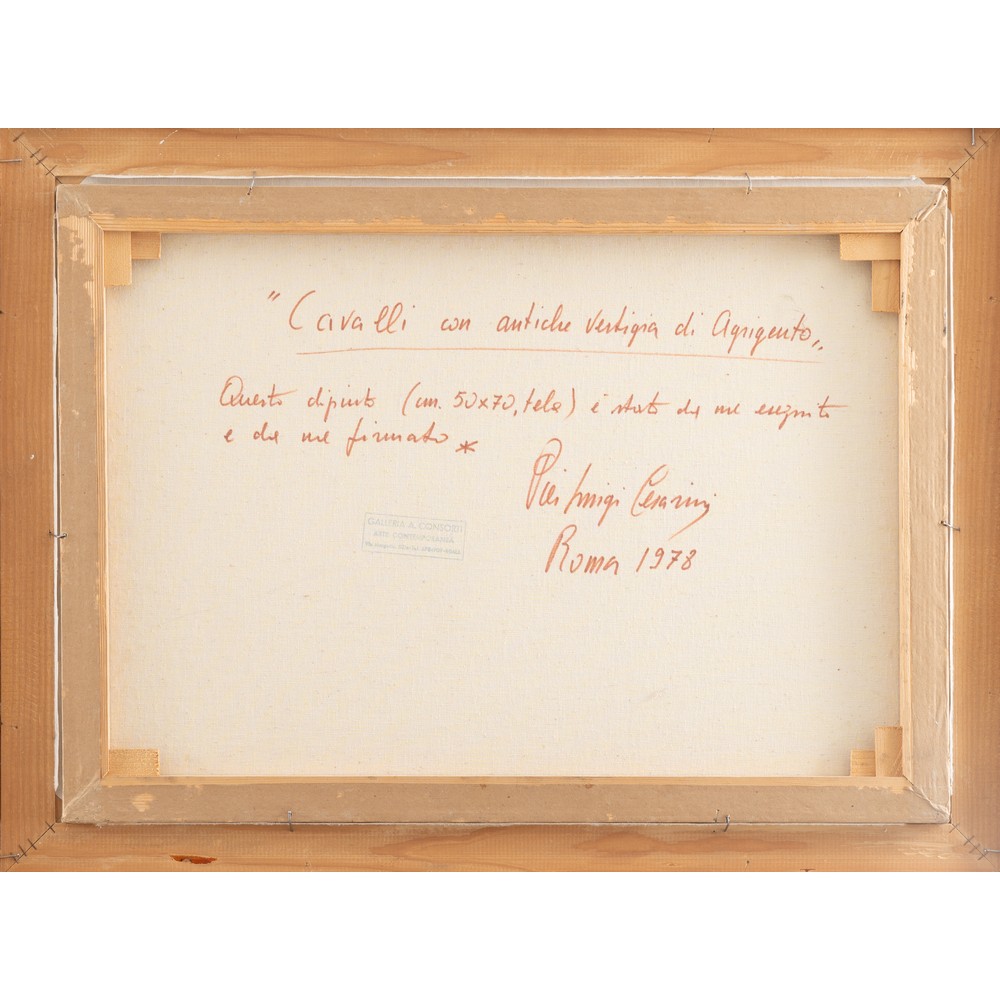 "Cavalli con antiche vestigia di Agrigento„
Questo dipinto (cm. 50x70, tela) è stato da me eseguito
e da me firmato *
Pier Luigi Cesarini
Roma 1978
GALLERIA A. CONSORTI
ARTE CONTEMPORANEA